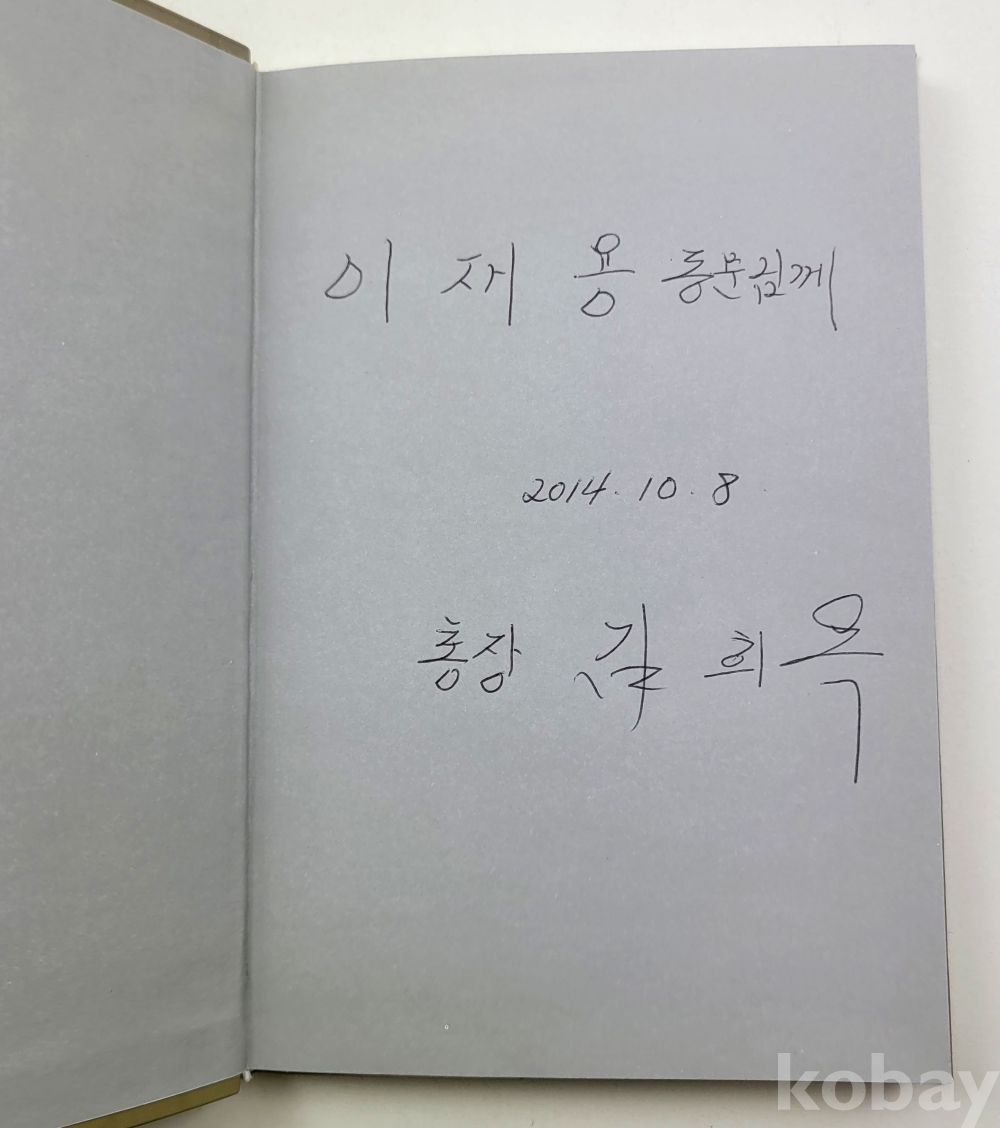 이 재 용 동문님께
2014. 10. 8
총장 김 희 옥
kobay